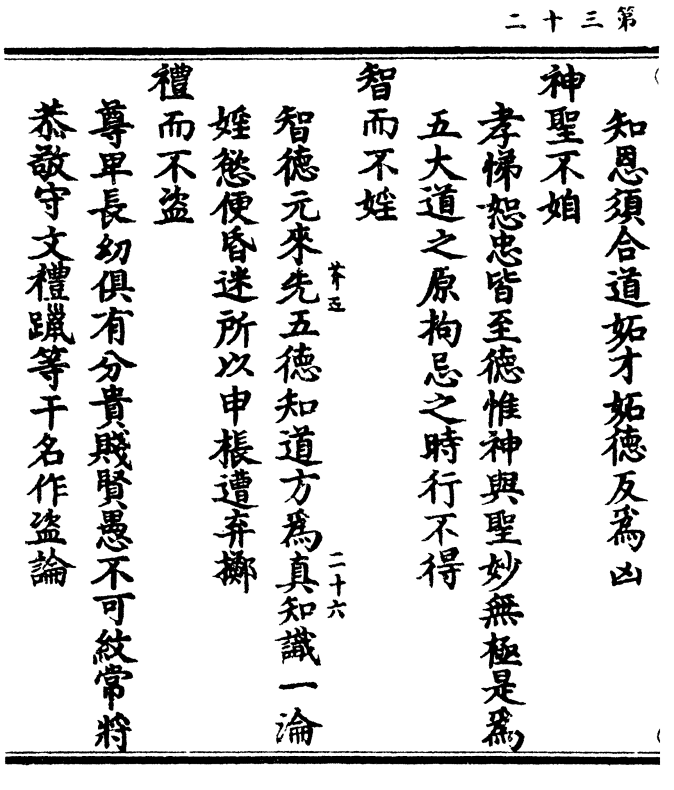 第三十二
知恩須合道妬才妬德反爲凶
神聖不妲
孝悌恕忠皆至德惟神與聖妙無極是爲
五大道之原拘忌之時行不得
智而不婬
智德元來先五德知道方爲真知識一淪
婬慾便昏迷所以申棖遭弃擲
禮而不盜
尊卑長幼俱有分貴賤賢愚不可紋常將
恭敬守文禮躐等干名作盜論
二十六